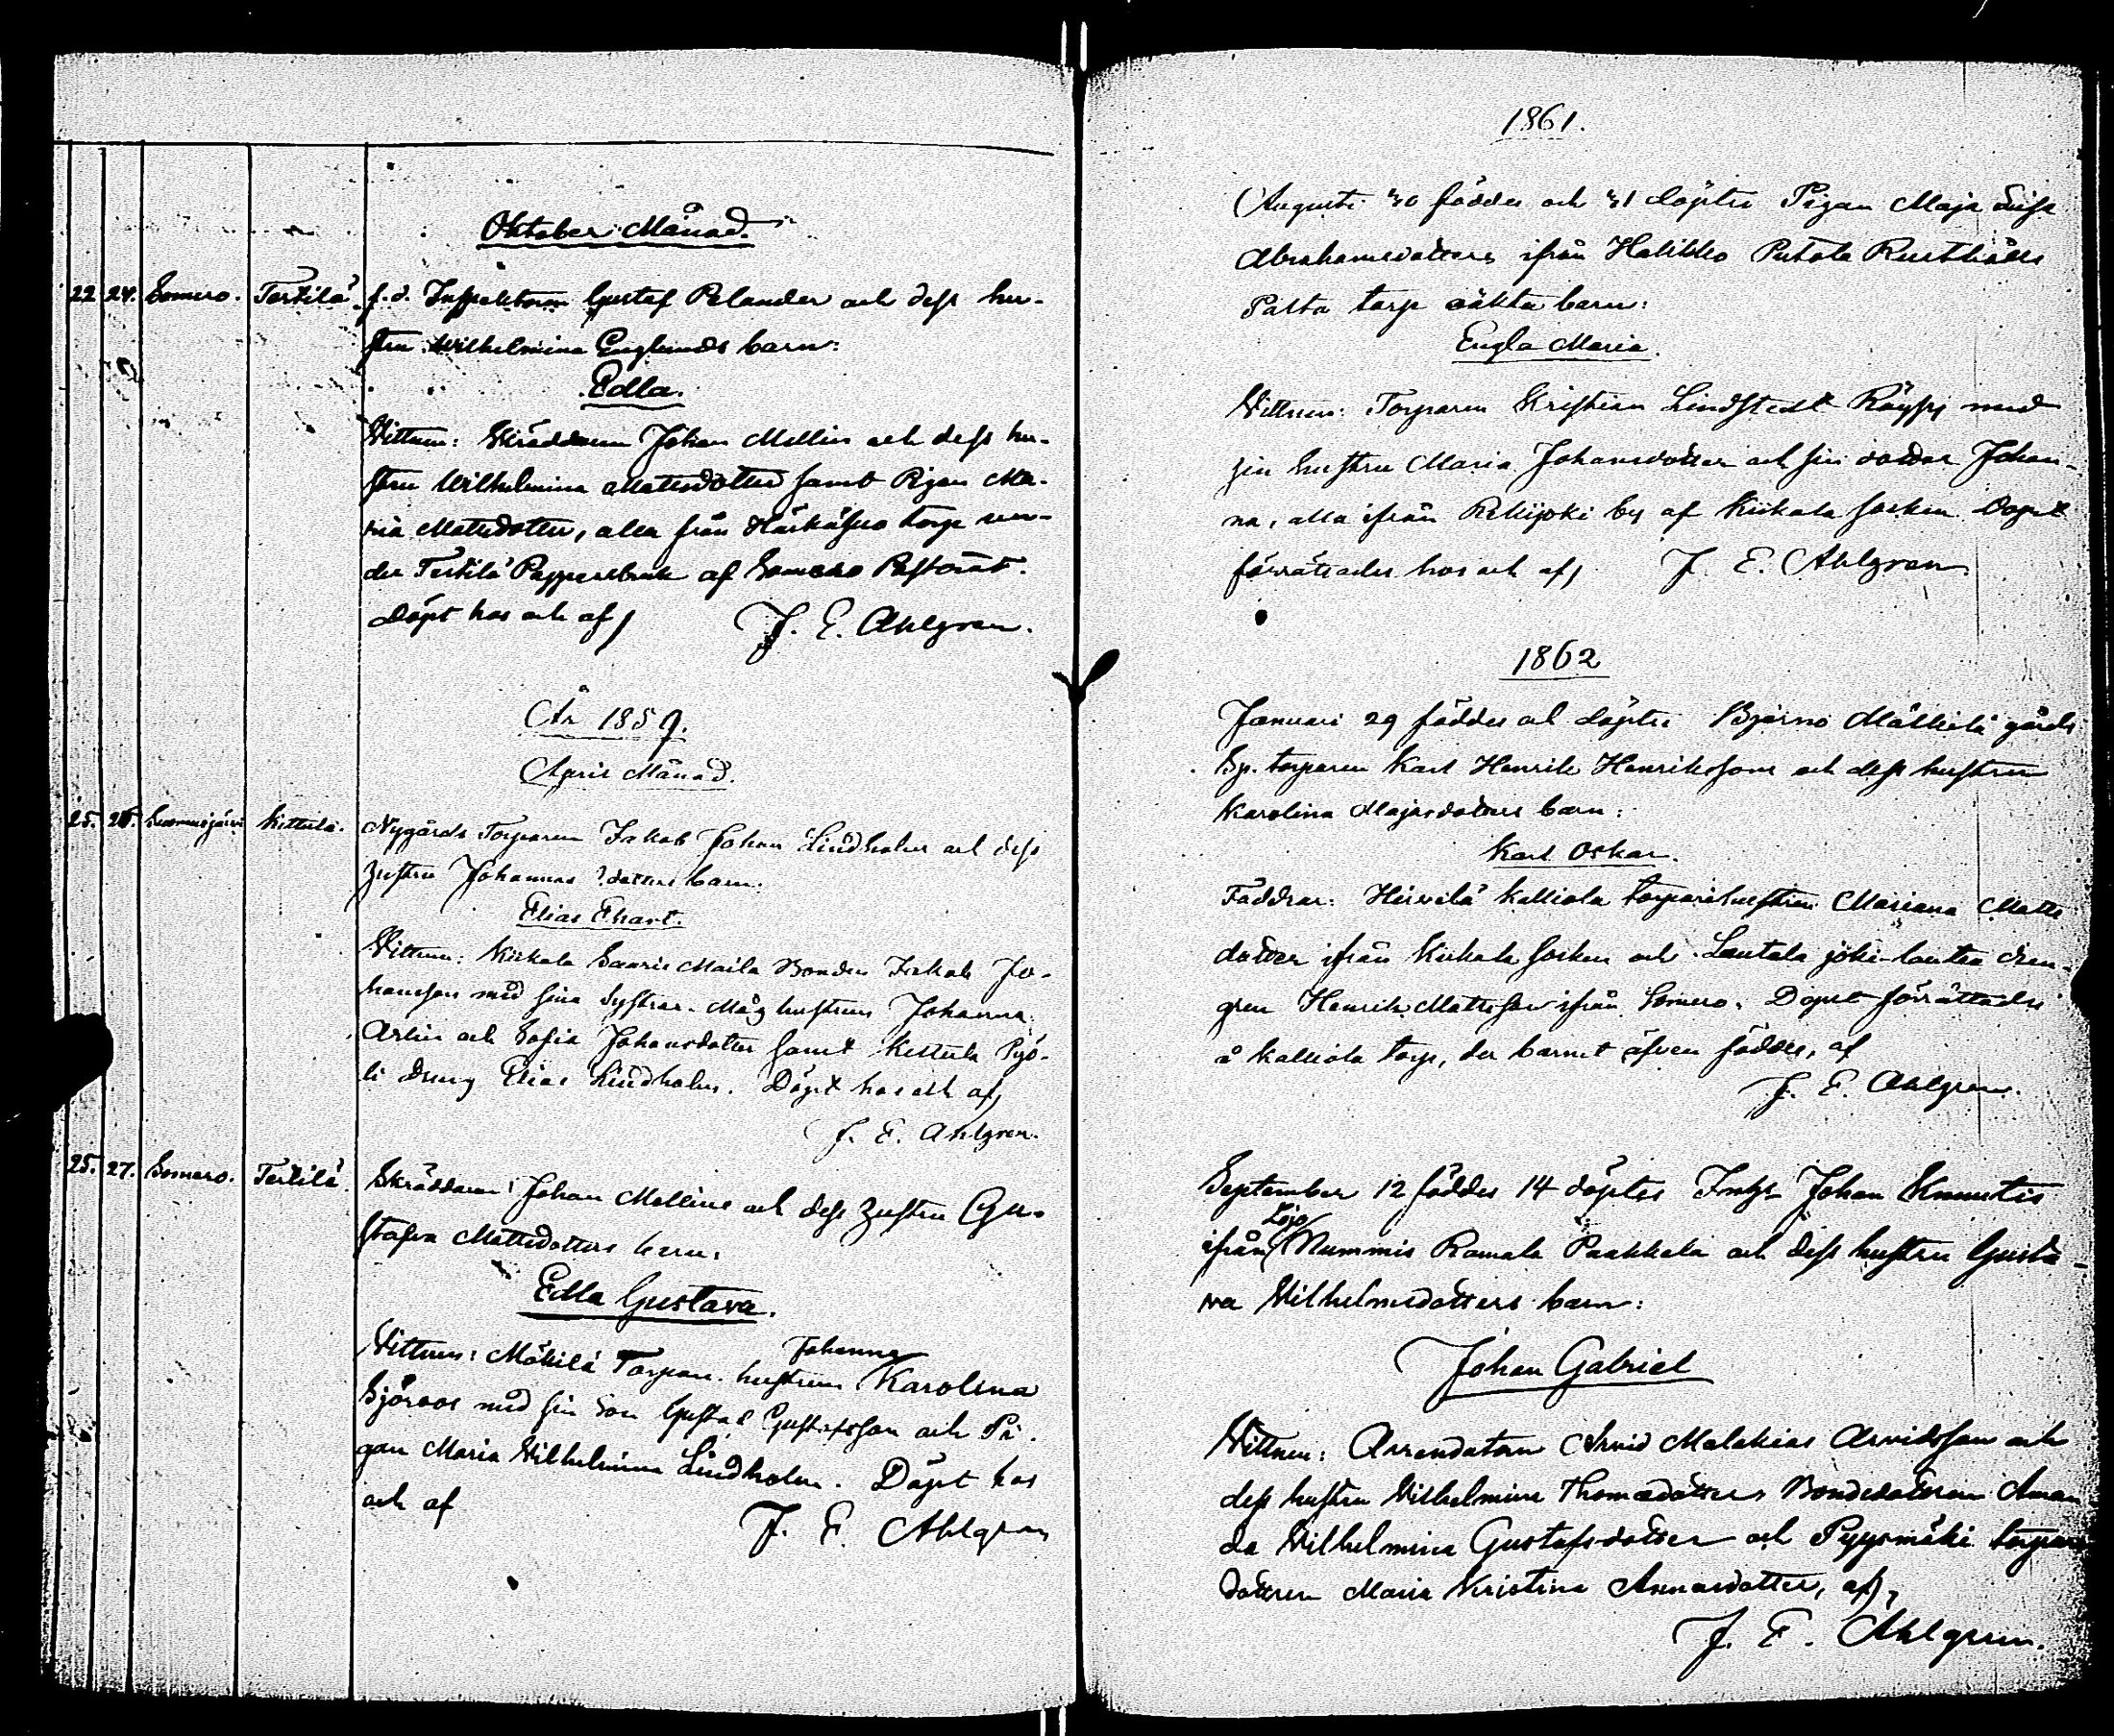 Oktober Månad.
22. 24. Somero. Tertilä. f. d. Inspektoren Gustaf Pelander och dess hu-
stru Wilhelmina Englunds barn:
Edla.
Vittnen: Skräddaren Johan Mellin och dess hu-
stru Wilhelmina Mattsdotter samt Pigan Ma-
ria Mattsdotter, alla från Härkäsuo torp un-
der Tertilä Pappersbruk af Somero Pastorat.
Döpt hos och af J. E. Ahlgren.
År 1859.
April Månad.
25. 26. Suomusjärvi Kettula. Nygårds Torparen Jakob Johan Lindholm och dess
Hustru Johannas ?dotters barn:
Elias Evart.
Vittnen: Kiikala Saaris Maila Bonden Jakob Jo-
hansson med sina Systrar. Måg hustrun Johanna
och Sofia Johansdotter samt Kettula Pyö-
li dreng Elias Lindholm. Döpt hos och af
J. E. Ahlgren.
25. 27. Somero. Tertilä. Skräddaren Johan Mellins och dess Hustru Gu-
stafva Mattsdotters barn:
Edla Gustava.
Johanna
Vittnen: Mäkilä Torpare hustrun Karolina
Sjöroos med sin son Gustaf Gustafsson och Pi-
gan Maria Wilhelmina Lindholm. Döpt hos
och af J. E. Ahlgren
1861.
Augusti 30 föddes och 31 döptes Pigan Maja Luisa
Abrahamsdotters ifrån Halikko Putola Rusthålls
Palta torp oäkta barn:
Engla Maria.
Vittnen: Torparen Kristian Lindstedt Räypy med
sin hustru Maria Johansdotter och sin dotter Johan-
na, alla ifrån Rekijoki by af Kiikala socken Dopet
förrättades hos och af J. E. Ahlgren.
1862
Januari 29 föddes och döptes Bjerno Mälkilä gårds
Sp. torparen Karl Henrik Henrikssons och dess hustru
Karolina Majasdotters barn:
Karl Oskar.
Faddrar: Hirvelä Kalliola torparehustrun Mariana Matts
dotter ifrån Kiikala socken och Lautela joki-lautta dren-
gen Henrik Mattsson ifrån Somero. Dopet förrättades
å Kalliola torp, der barnet äfven föddes, af
J. E. Ahlgren.
September 12 föddes 14 döptes Inhys Johan Knuutis
Lojo
ifrån Nummis Romala Paakkala och dess hustru Gusta-
va Wilhelmsdotters barn:
Johan Gabriel
Vittnen: Arrendatorn Arvid Malakias Arvidsson och
dess hustru Wilhelmina Thomædotter, Bondedottren Aman
da Wilhelmina Gustafsdotter och Pyysmäki torpare
dottren Maria Kristina Annasdotter, af
J. E. Ahlgren.